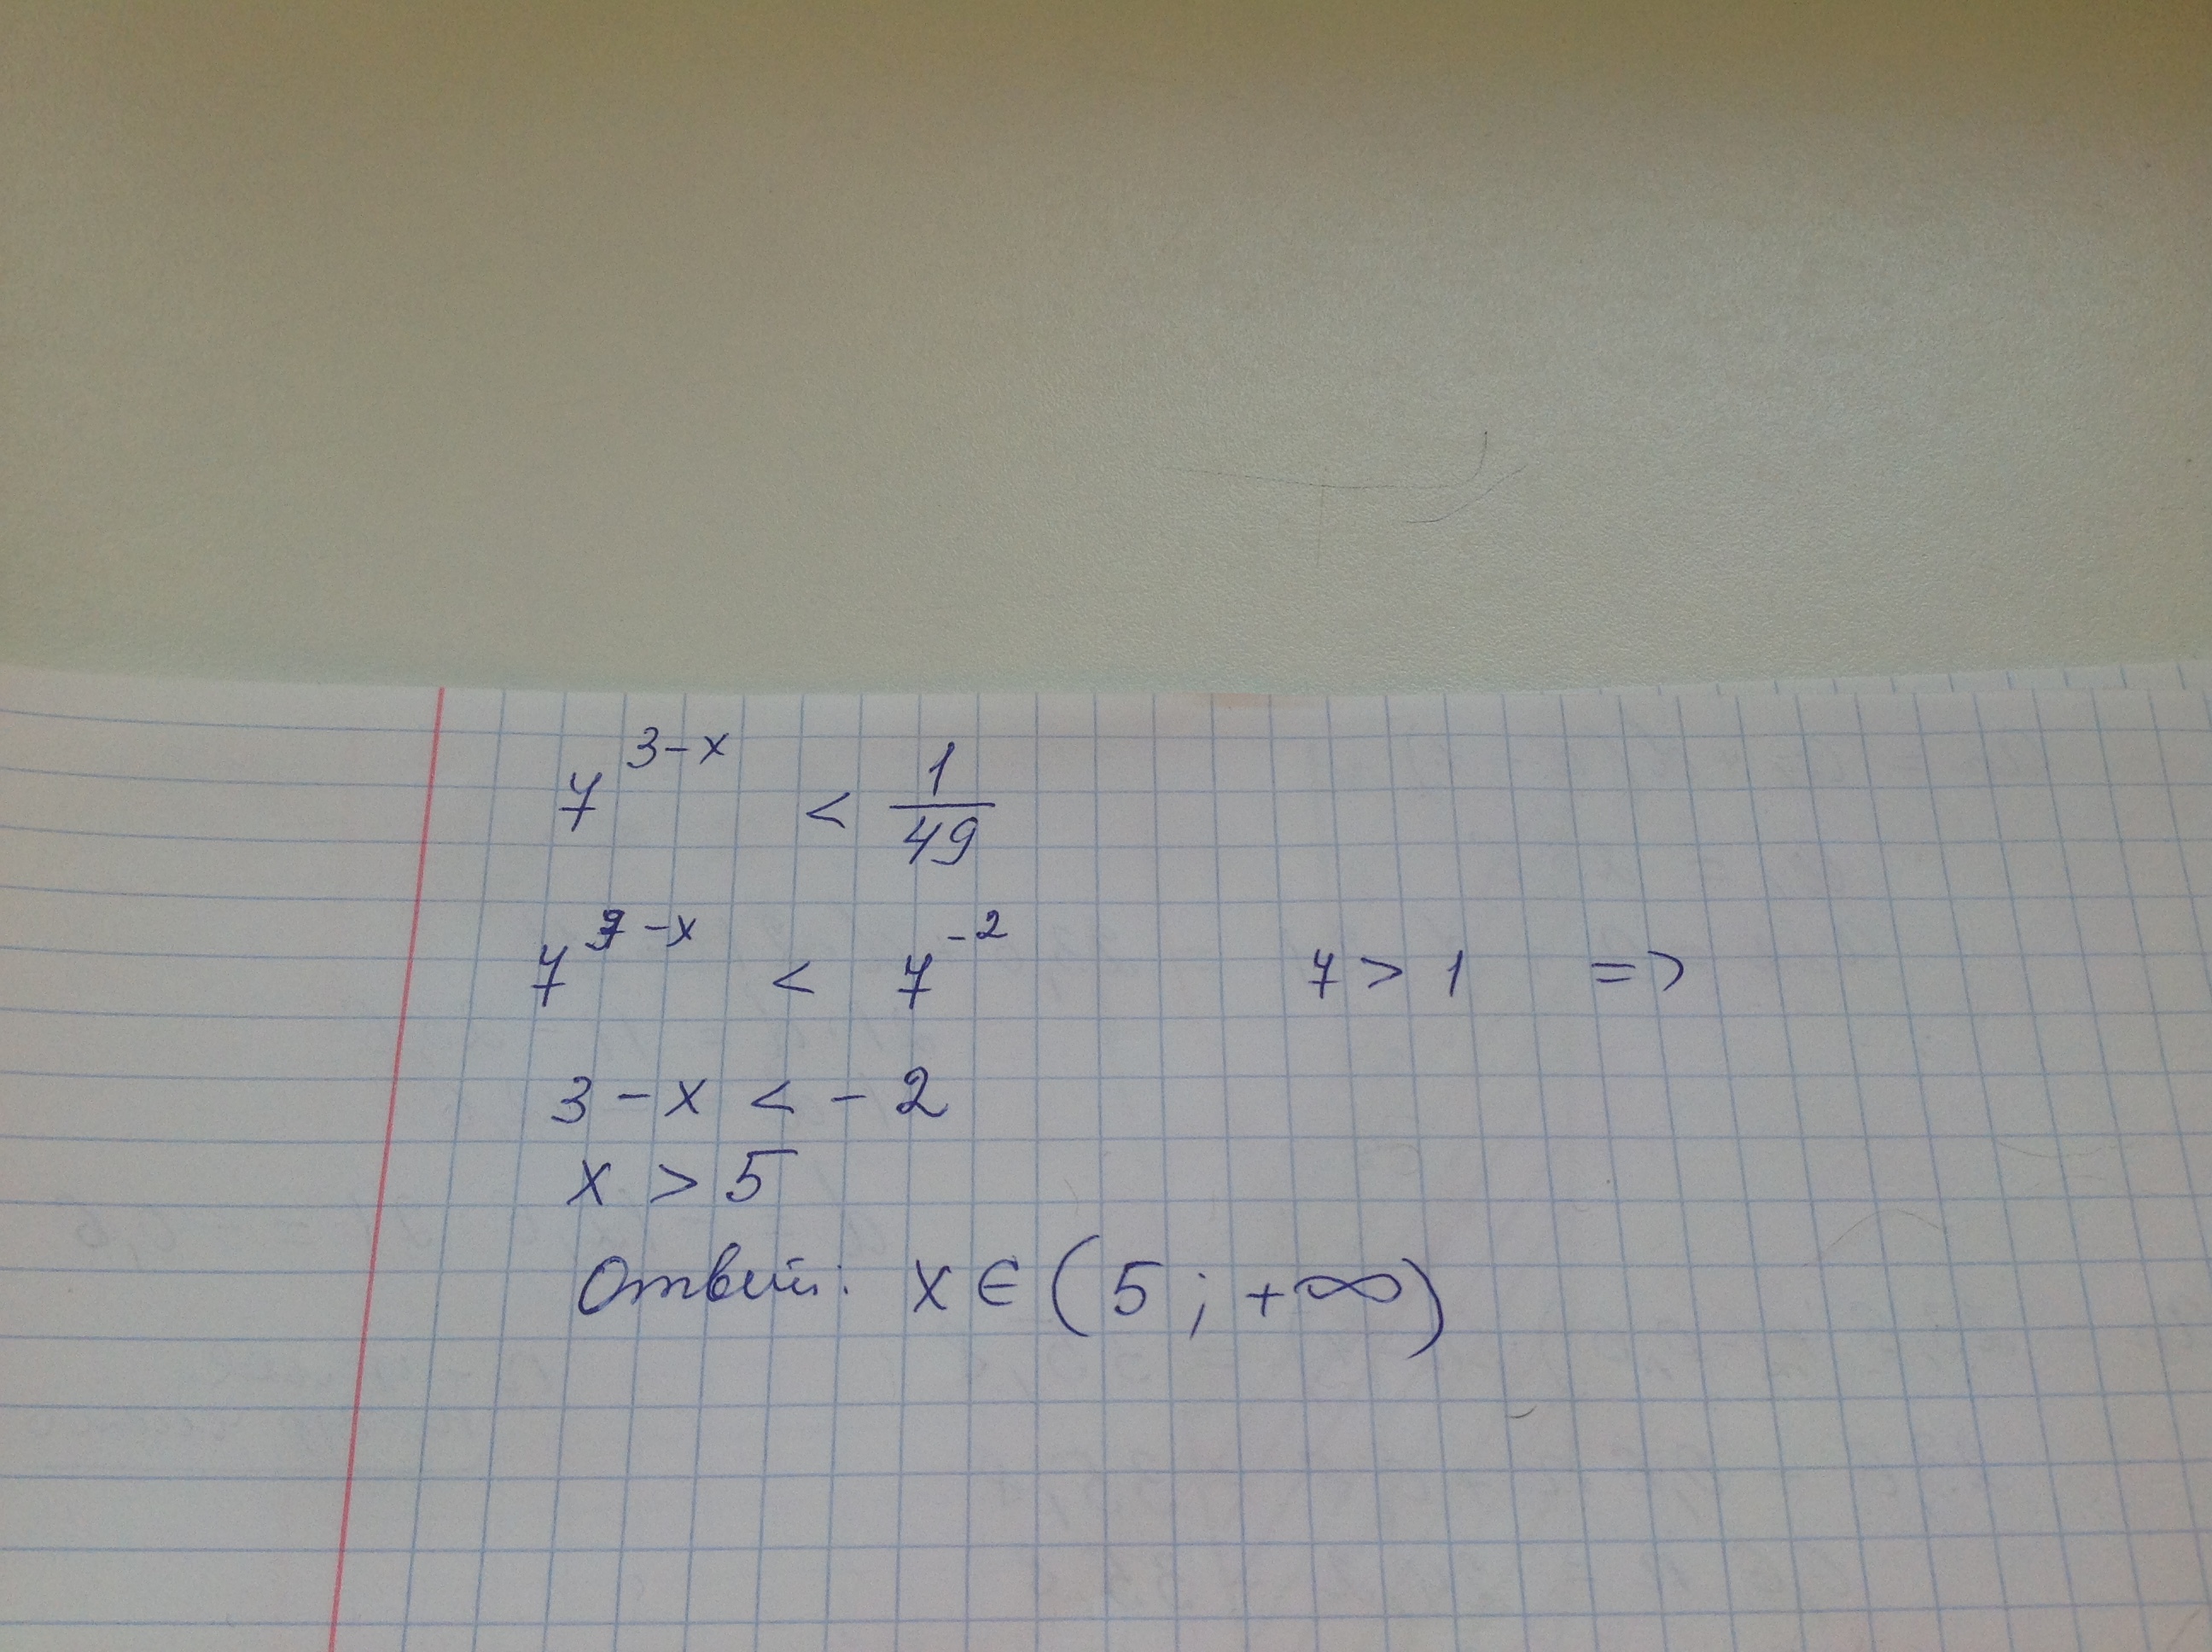 7^{3-x} < \frac{1}{49}
7^{3-x} < 7^{-2} 7 > 1 =>
3 - x < - 2
x > 5
Ответ: x ∈ (5; +∞)